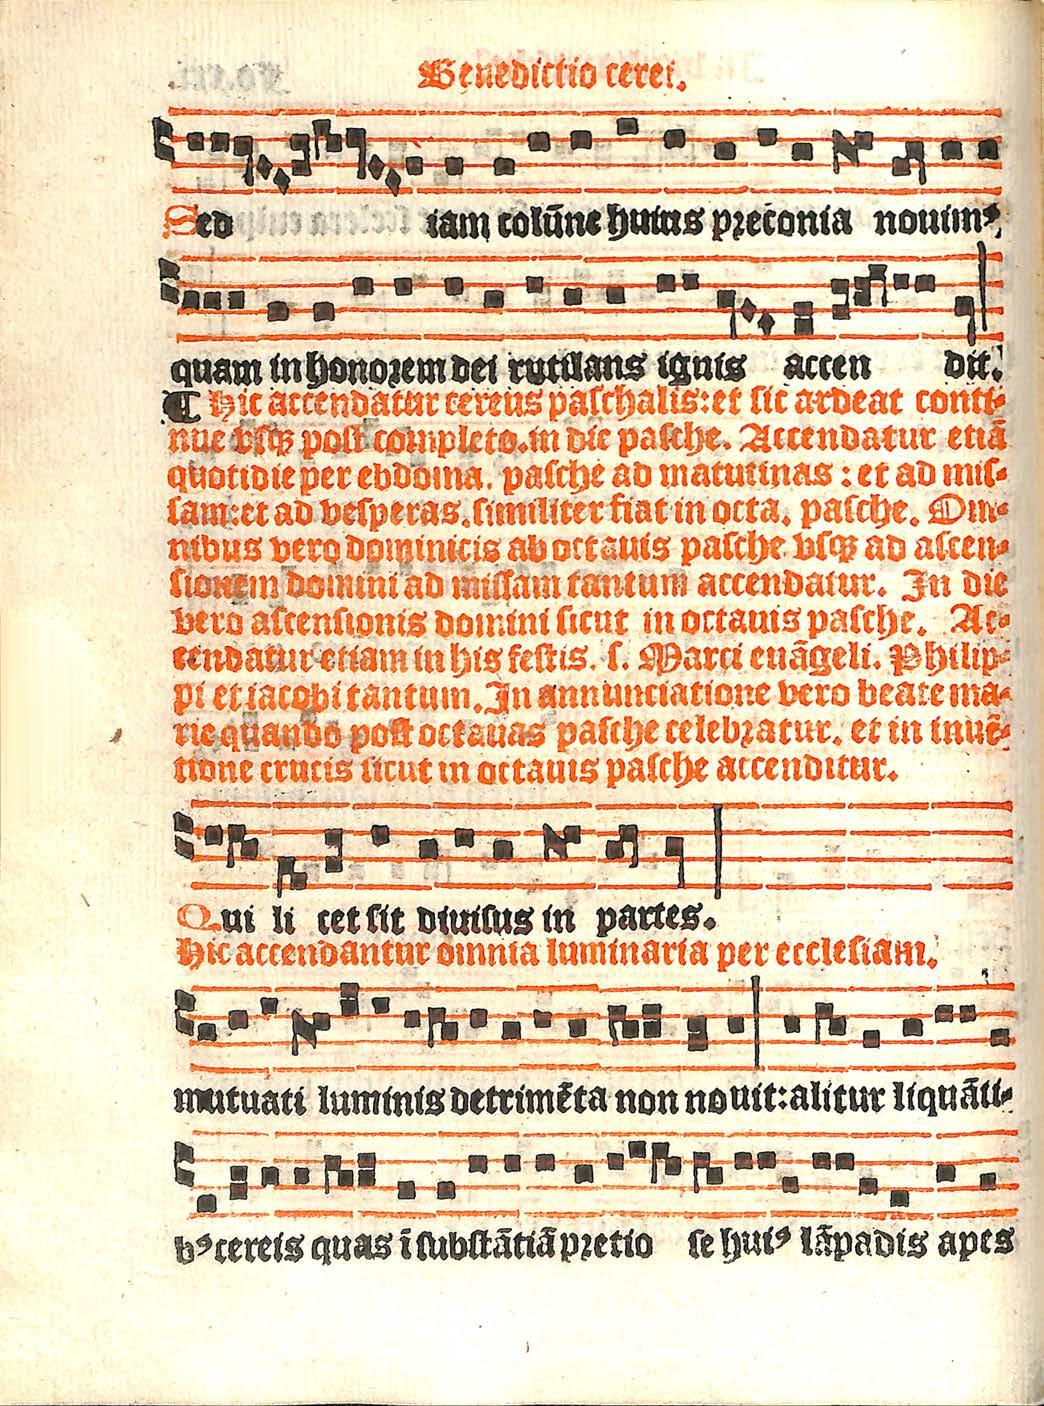 Benedictio cerei.
Sed iam colūne huius preconia nouimꝰ
quam in honorem dei rutilans ignis accen dit.
¶ Hic accendatur cereus paschalis: et sic ardeat conti-
nue vsqꝫ post completo. in die pasche. Accendatur etiā
quotidie per ebdoma. pasche ad matutinas : et ad mis-
sam: et ad vesperas. similiter fiat in octa. pasche. Om-
nibus vero dominicis ab octauis pasche vsqꝫ ad ascen-
sionem domini ad missam tantum accendatur. In die
vero ascensionis domini sicut in octauis pasche. Ac-
cendatur etiam in his festis. s. Marci euāgeli. Philip-
pi et iacobi tantum. In annunciatione vero beate ma-
rie quando post octauas pasche celebratur. et in inuē-
tione crucis sicut in octauis pasche accenditur.
Qui li cet sit diuisus in partes.
Hic accendantur omnia luminaria per ecclesiam.
mutuati luminis detrimēta non nouit: alitur liquāti-
bꝰ cereis quas ī substātiā pretio se huiꝰ lāpadis apes